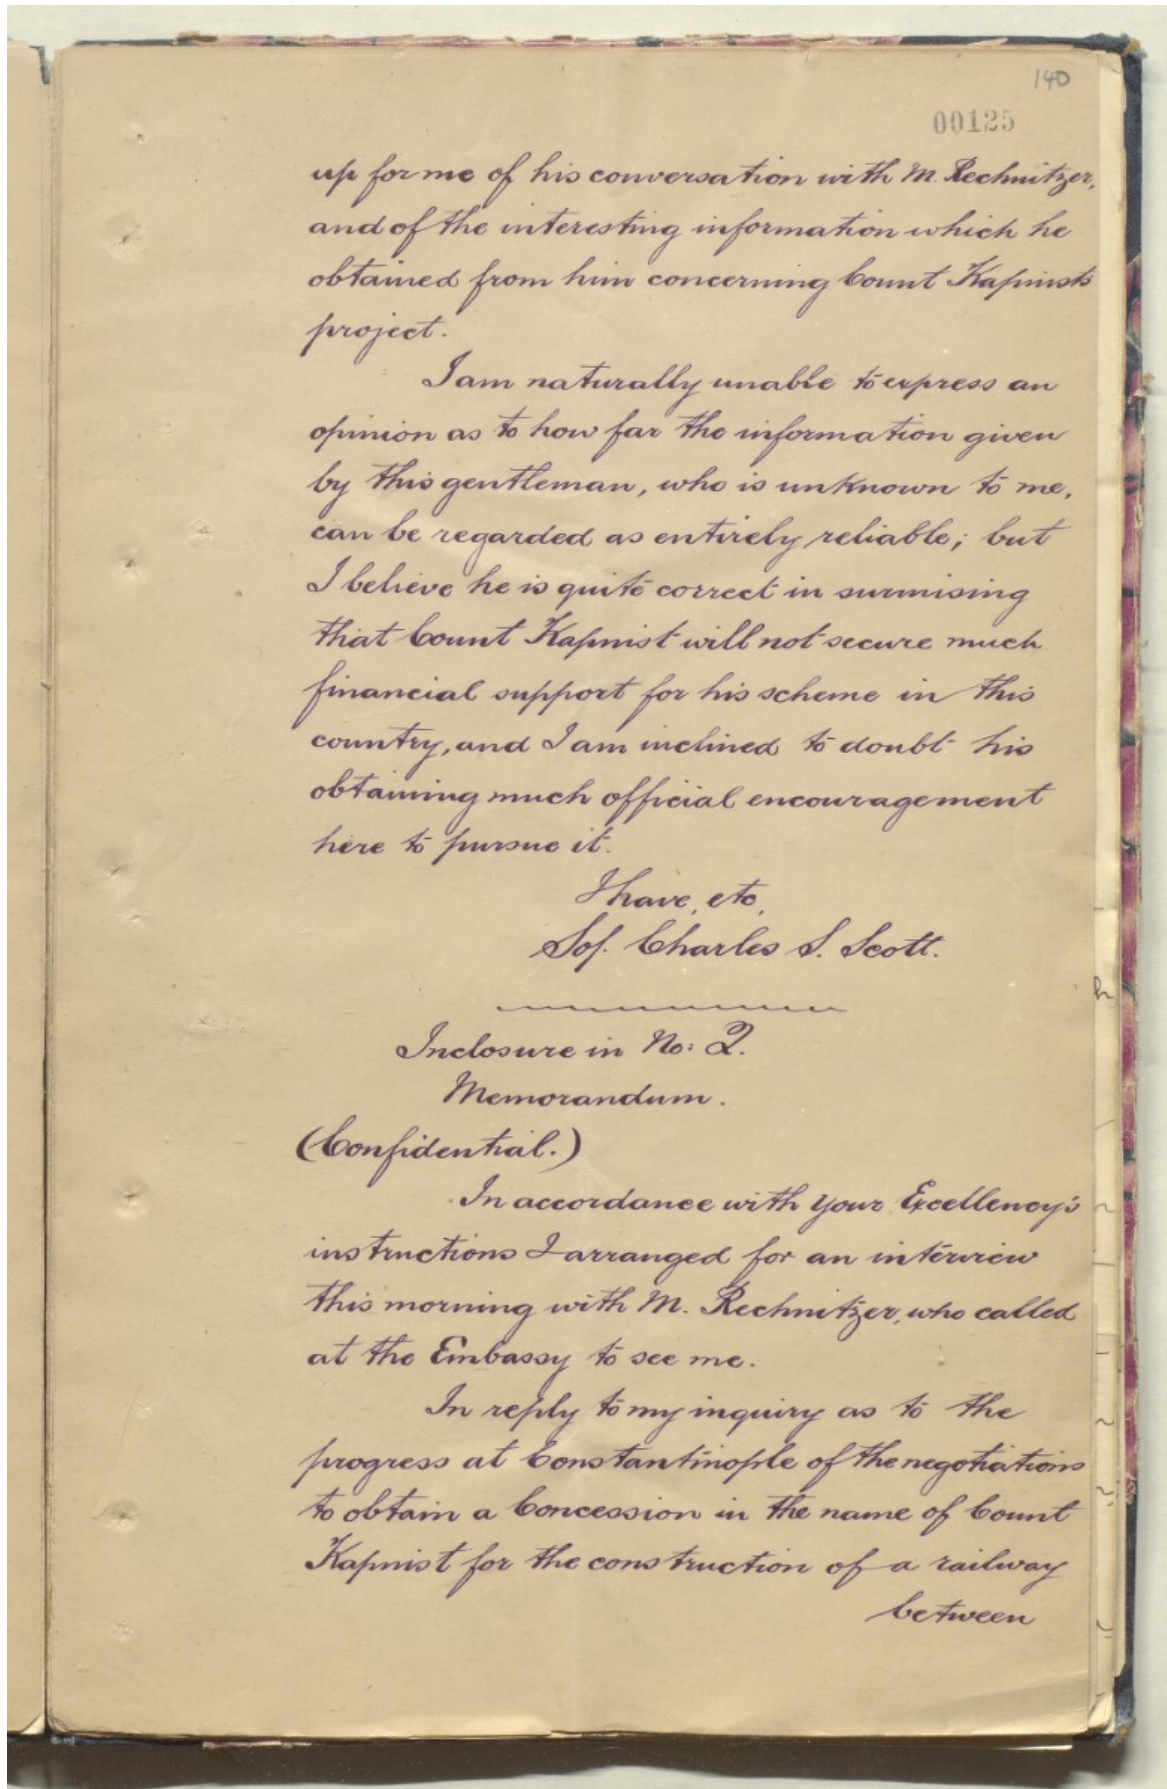 140
00125
up for me of his conversation with M. Rechnitzer,
and of the interesting information which he
obtained from him concerning Count Kapnist's
project.
I am naturally unable to express an
opinion as to how far the information given
by this gentleman, who is unknown to me,
can be regarded as entirely reliable; but
I believe he is quite correct in surmising
that Count Kapnist will not secure much
financial support for his scheme in this
country, and I am inclined to doubt his
obtaining much official encouragement
here to pursue it.
I have, etc,
Charles S. Scott.
Inclosure in No: 2.
Memorandum.
(Confidential.)
In accordance with Your Excellency's
instructions I arranged for an interview
this morning with M. Rechnitzer, who called
at the Embassy to see me.
In reply to my inquiry as to the
progress at Constantinople of the negotiations
to obtain a Concession in the name of Count
Kapnist for the construction of a railway
between